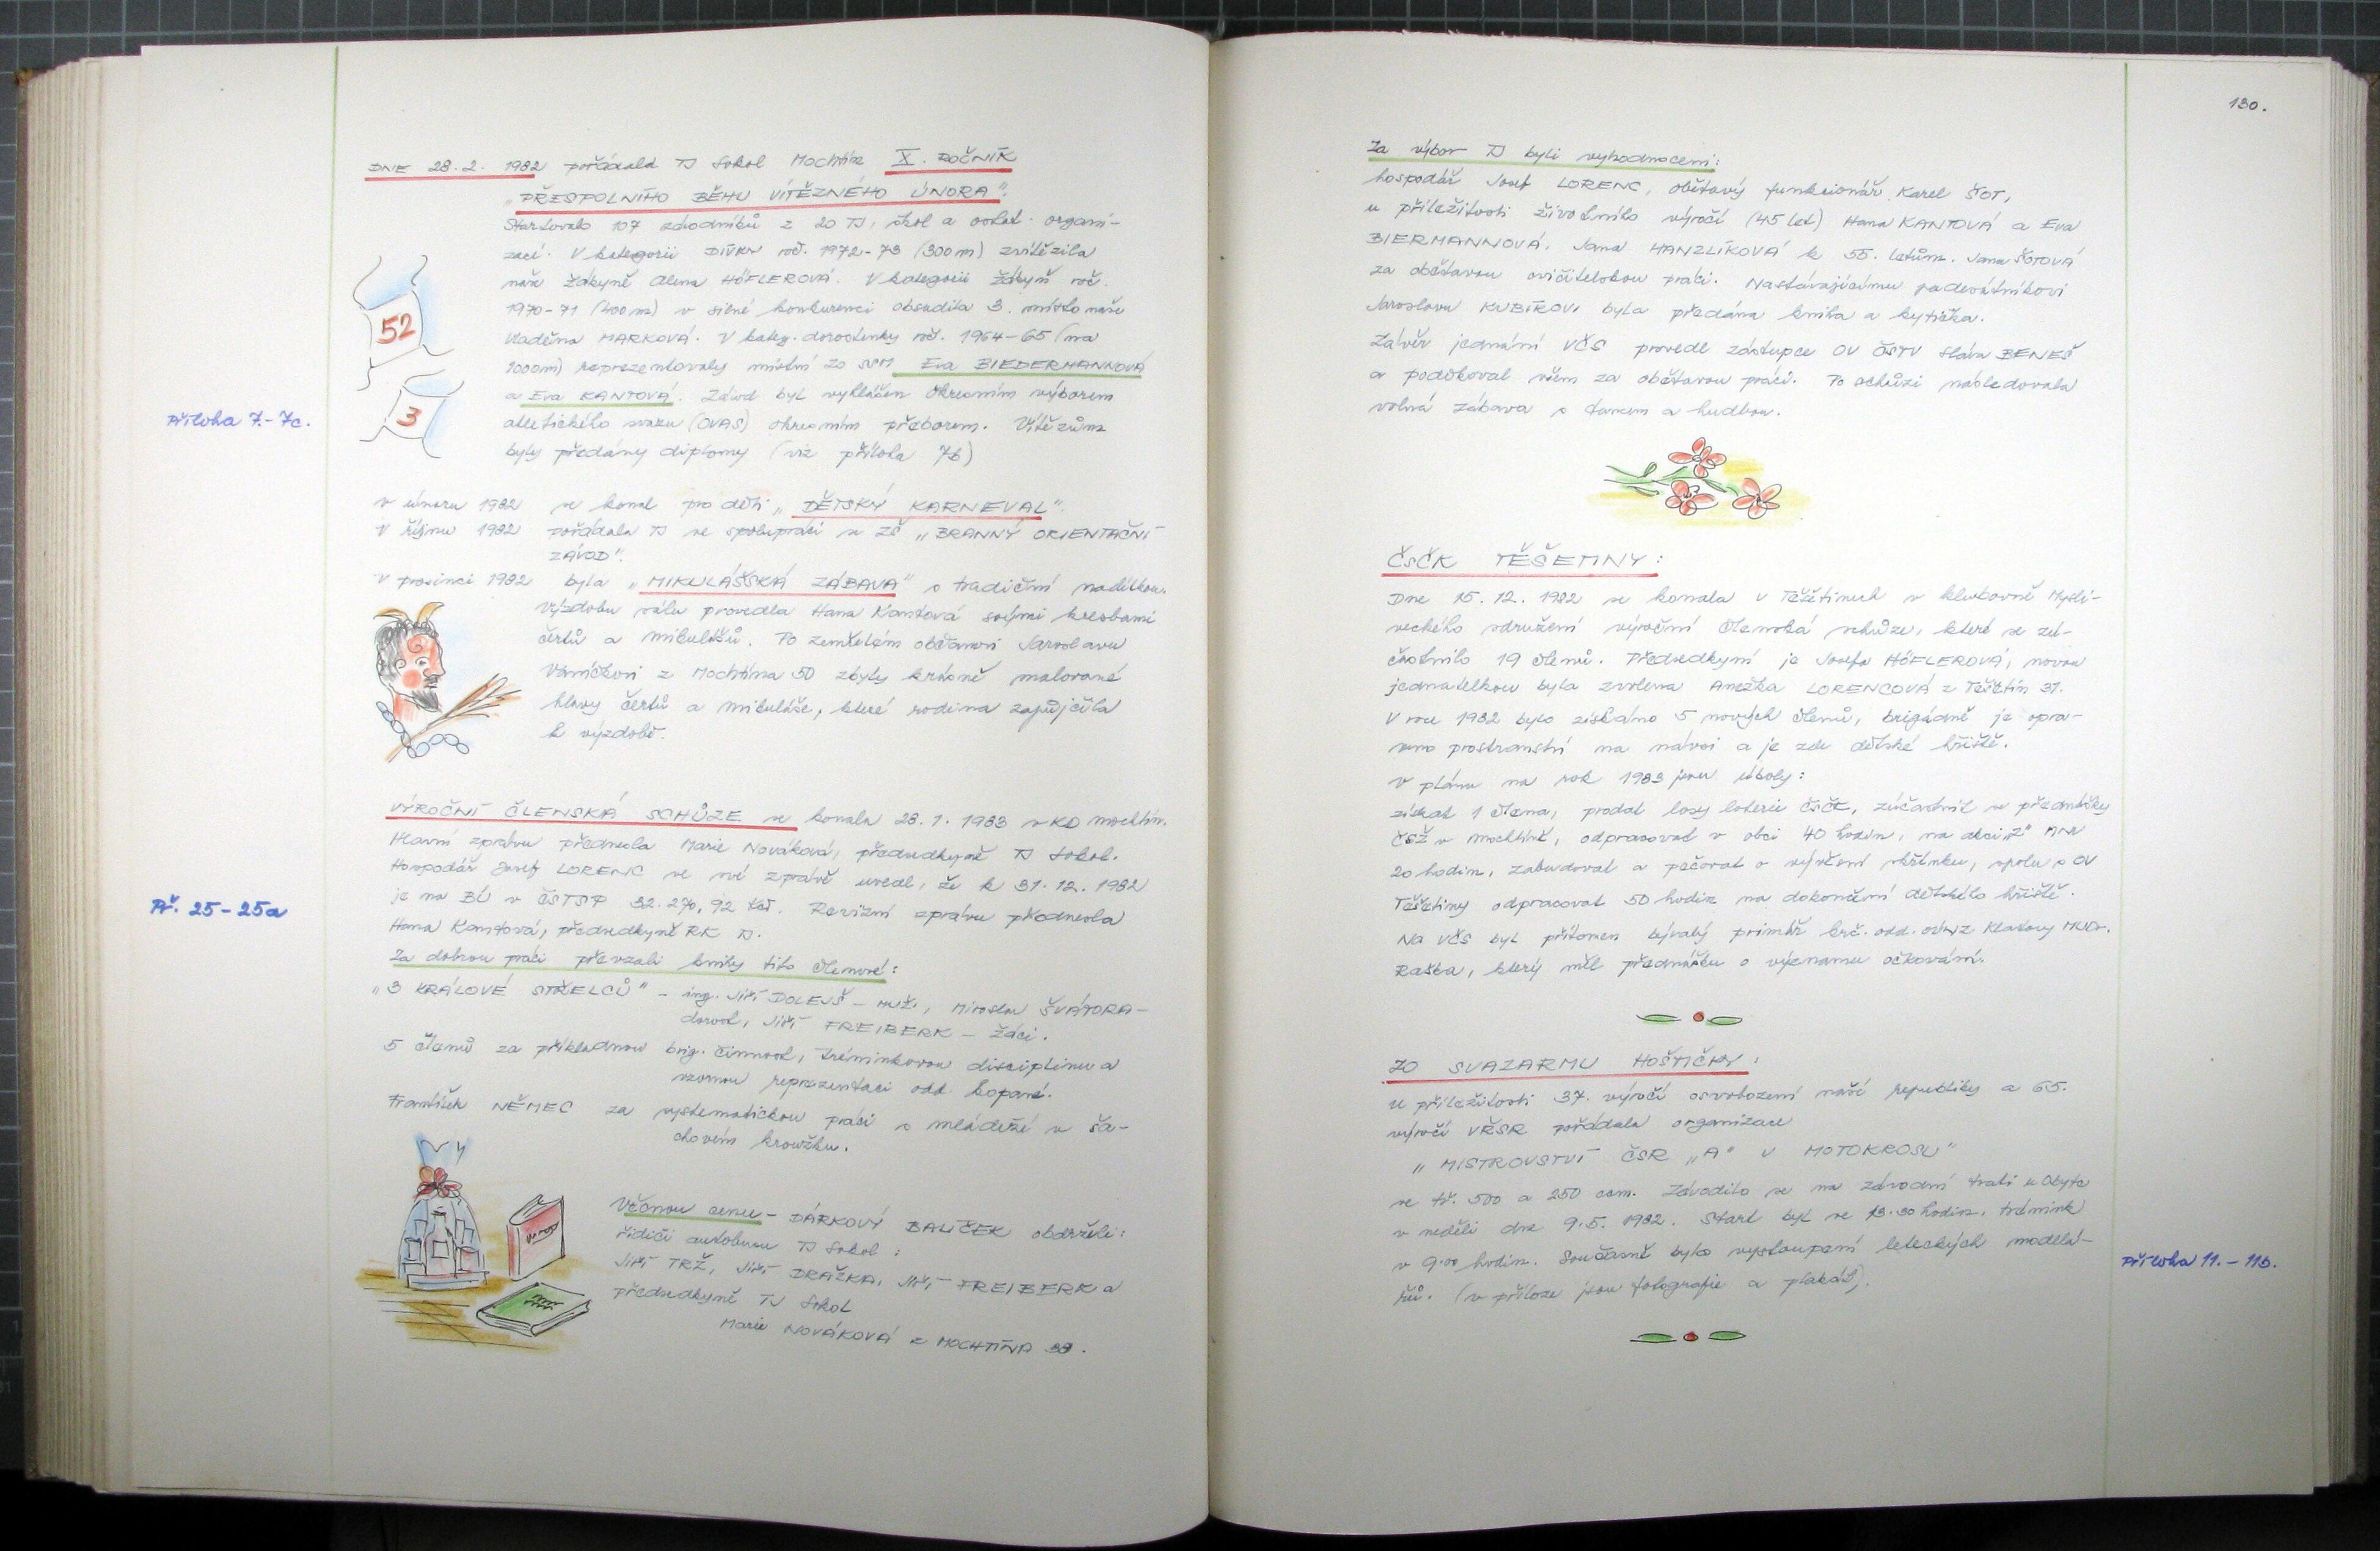 DNE 28.2. 1982 pořádala TJ Sokol Mochtín X. ROČNÍK
„PŘESPOLNÍHO BĚHU VÍTĚZNÉHO ÚNORA".
Startovalo 107 závodníků z 20 TJ, škol a ostat. organi-
zací. V kategorii DÍVKY roč. 1972-73 (300m) zvítězila
naše žákyně Alena HÖFLEROVÁ. V kategorii žákyň roč.
1970-71 (400m) v silné konkurenci obsadila 3. místo naše
Vladěna MARKOVÁ. V kateg. dorostenky roč. 1964-65 (na
1000m) reprezentovaly místní ZO SSM Eva BIEDERMANNOVÁ
a Eva KANTOVÁ. Závod byl vyhlášen Okresním výborem
atletického svazu (OVAS) okresním přeborem. Vítězům
byly předány diplomy (viz příloha 7b)
52
3
Příloha 7.-7c.
v únoru 1982 se konal pro děti „DĚTSKÝ KARNEVAL".
V říjnu 1982 pořádala TJ ve spolupráci se ZŠ „BRANNÝ ORIENTAČNÍ
ZÁVOD".
V prosinci 1982 byla „MIKULÁŠSKÁ ZÁBAVA" s tradiční nadílkou.
Výzdobu sálu provedla Hana Kantová svými kresbami
čertů a Mikulášů. Po zemřelém občanovi Jaroslavu
Vaníčkovi z Mochtína 50 zbyly krásně malované
hlavy čertů a Mikuláše, které rodina zapůjčila
k výzdobě.
VÝROČNÍ ČLENSKÁ SCHŮZE se konala 28.1. 1983 v KD Mochtín.
Hlavní zprávu přednesla Marie Nováková, předsedkyně TJ Sokol.
Hospodář Josef LORENC ve své zprávě uvedl, že k 31.12. 1982
je na BÚ v ČSTSP 32.270,92 Kčs. Revizní zprávu přednesla
Hana Kantová, předsedkyně RK TJ.
Př. 25-25a
Za dobrou práci převzali knihy tito členové:
„3 KRÁLOVÉ STŘELCŮ" - ing. Jiří DOLEJŠ - muži, Miroslav ŠVÁTORA -
dorost, Jiří FREIBERK - žáci.
5 členů za příkladnou brig. činnost, tréninkovou disciplinu a
vzornou reprezentaci odd. kopané.
František NĚMEC za systematickou práci s mládeží v ša-
chovém kroužku.
Věcnou cenu - DÁRKOVÝ BALÍČEK obdrželi:
řidiči autobusu TJ Sokol:
Jiří TRŽ, Jiří DRAŽKA, Jiří FREIBERK a
předsedkyně TJ Sokol
Marie NOVÁKOVÁ z MOCHTÍNA 38.
130.
Za výbor TJ byli vyhodnoceni:
hospodář Josef LORENC, obětavý funkcionář Karel ŠOT,
u příležitosti životního výročí (45 let) Hana KANTOVÁ a Eva
BIERMANNOVÁ. Jana HANZLÍKOVÁ k 55. letům. Jana ŠOTOVÁ
za obětavou cvičitelskou práci. Nastávajícímu padesátníkovi
Jaroslavu KUBÍKOVI byla předána kniha a kytička.
Závěr jednání VČS provedl zástupce OV ČSTV Sláva BENEŠ
a poděkoval všem za obětavou práci. Po schůzi následovala
volná zábava s tancem a hudbou.
ČSČK TĚŠETINY:
Dne 15.12. 1982 se konala v Těšetinech v klubovně Mysli-
veckého sdružení výroční členská schůze, které se zú-
častnilo 19 členů. Předsedkyní je Josefa HÖFLEROVÁ, novou
jednatelkou byla zvolena Anežka LORENCOVÁ z Těšetin 31.
V roce 1982 bylo získáno 5 nových členů, brigádně je opra-
veno prostranství na návsi a je zde dětské hřiště.
V plánu na rok 1983 jsou úkoly:
získat 1 člena, prodat losy loterie ČSČK, zúčastnit se přednášky
ČSŽ v Mochtíně, odpracovat v obci 40 hodin, na akci „Z" MNV
20 hodin, zabudovat a pečovat o vývěsní skřínku, spolu s OV
Těšetiny odpracovat 50 hodin na dokončení dětského hřiště.
Na VČS byl přítomen bývalý primář krč. odd. OÚNZ Klatovy MUDr.
Raška, který měl přednášku o významu očkování.
ZO SVAZARMU HOŠTIČKY:
u příležitosti 37. výročí osvobození naší republiky a 65.
výročí VŘSR pořádala organizace
„MISTROVSTVÍ ČSR „A" V MOTOKROSU"
ve tř. 500 a 250 ccm. Závodilo se na závodní trati u Obytc
v neděli dne 9.5. 1982. Start byl ve 13.30 hodin, trénink
v 9.00 hodin. Současně bylo vystoupení leteckých modelá-
řů. (v příloze jsou fotografie a plakát).
Příloha 11.-11b.